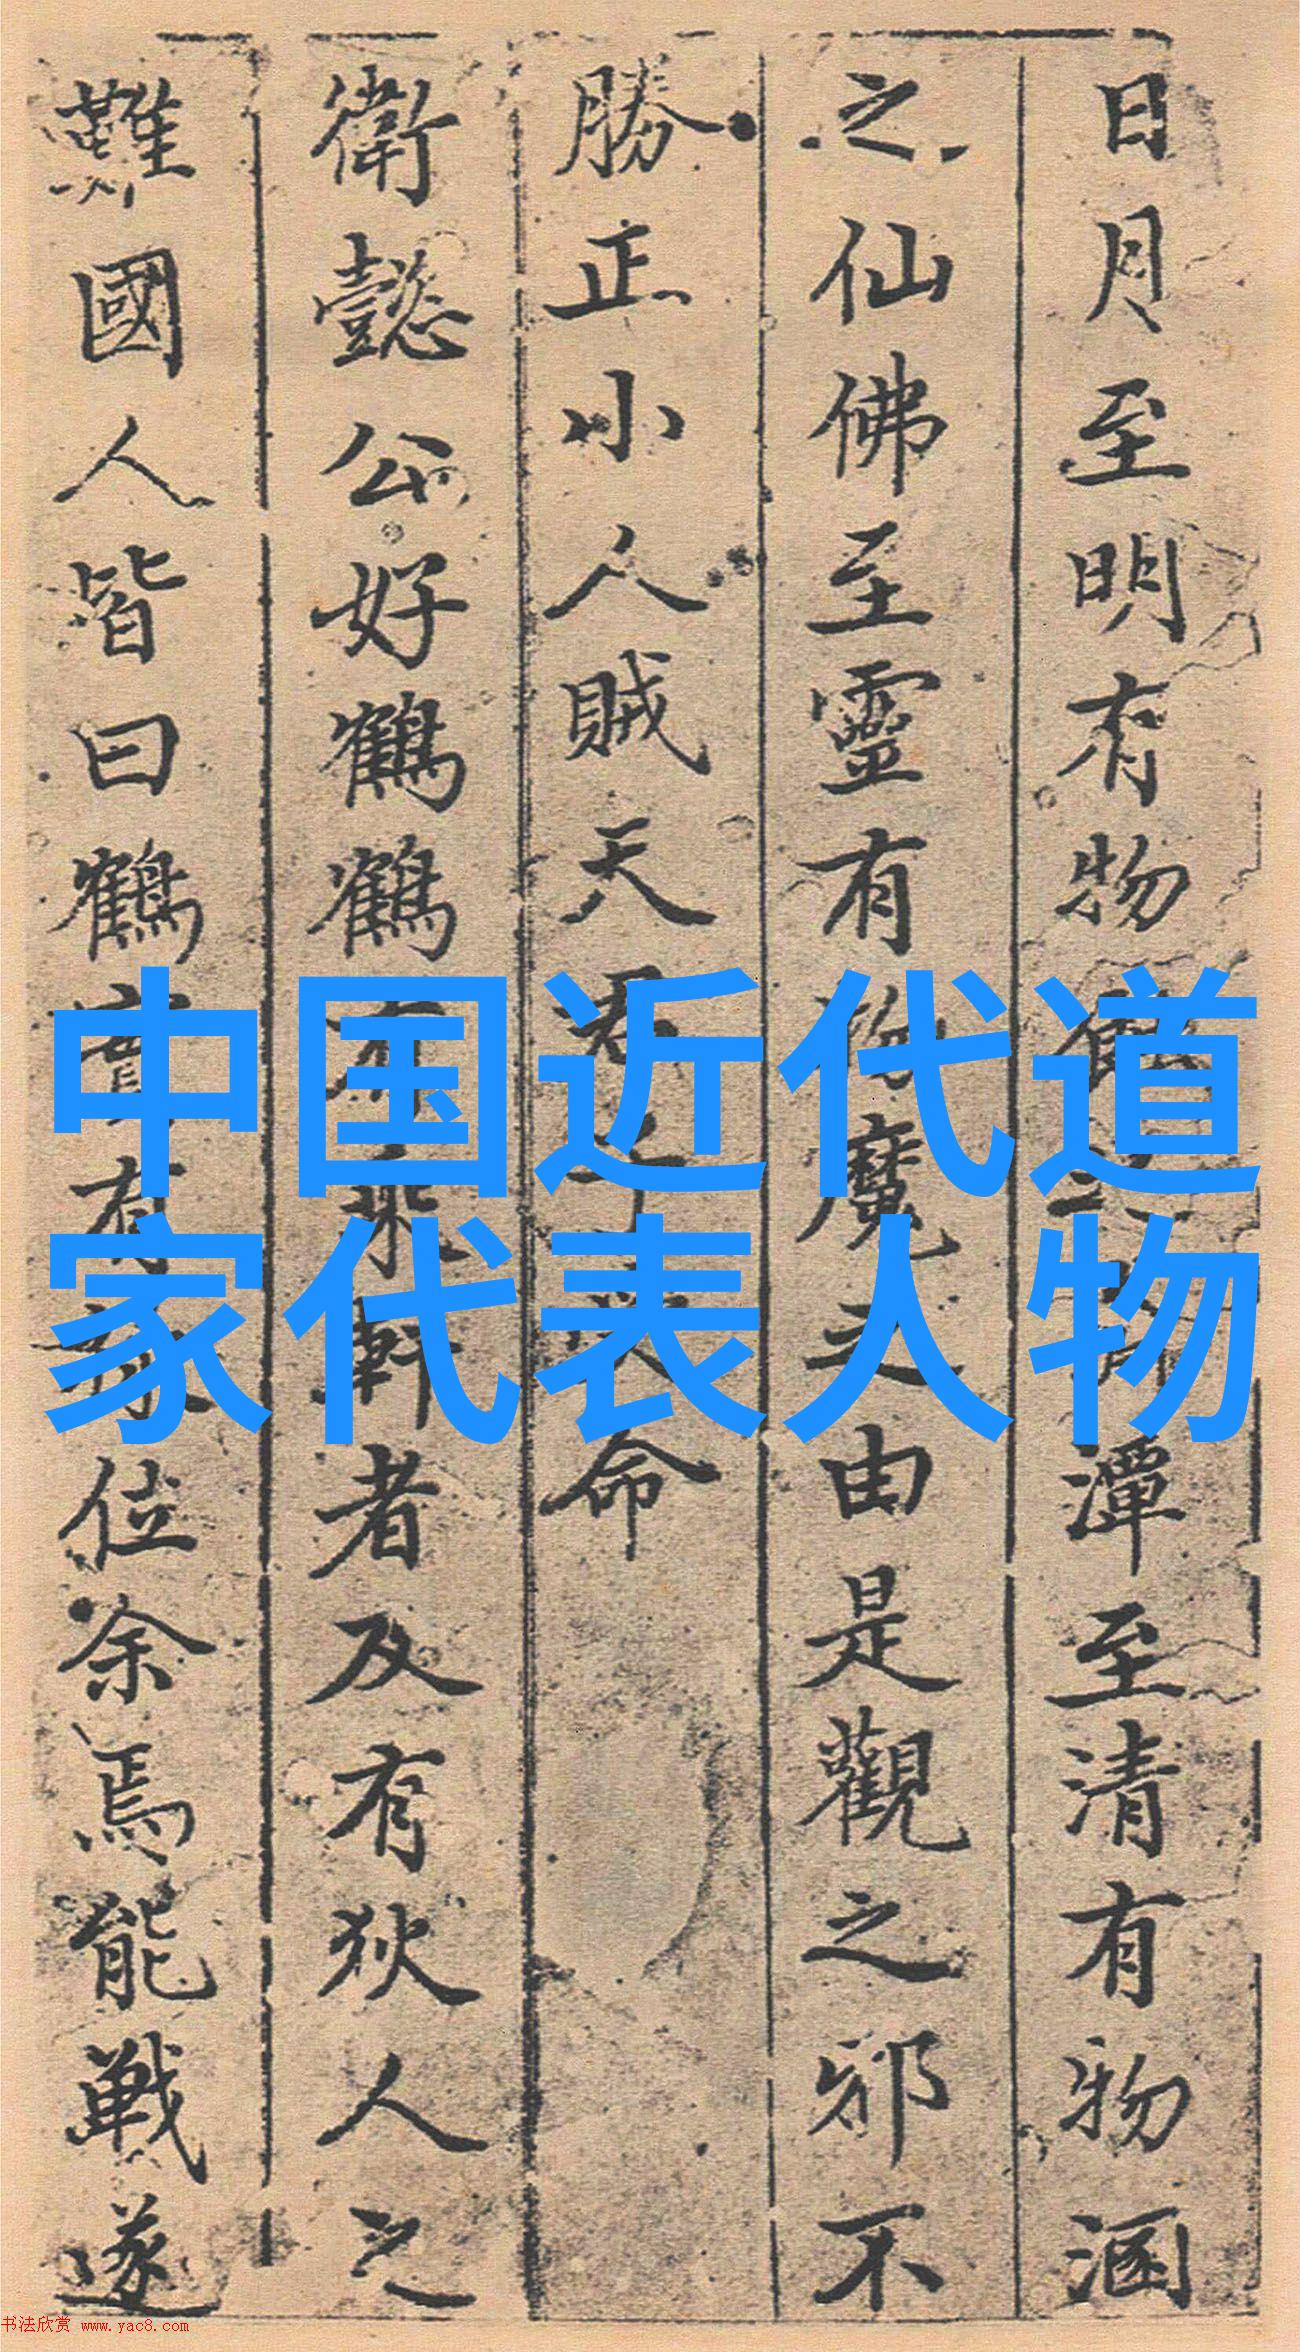 中国近代道
家代表人物
日月至明有物之潭至清有物涵
之仙佛至靈有物魔之由是觀之邪不
勝正小人賊天君命
衛懿公好鶴鶴有乘軒者及有狄人之
難國人皆曰鶴實有祿位余焉能戰遂
书法欣赏 www.yac8.com